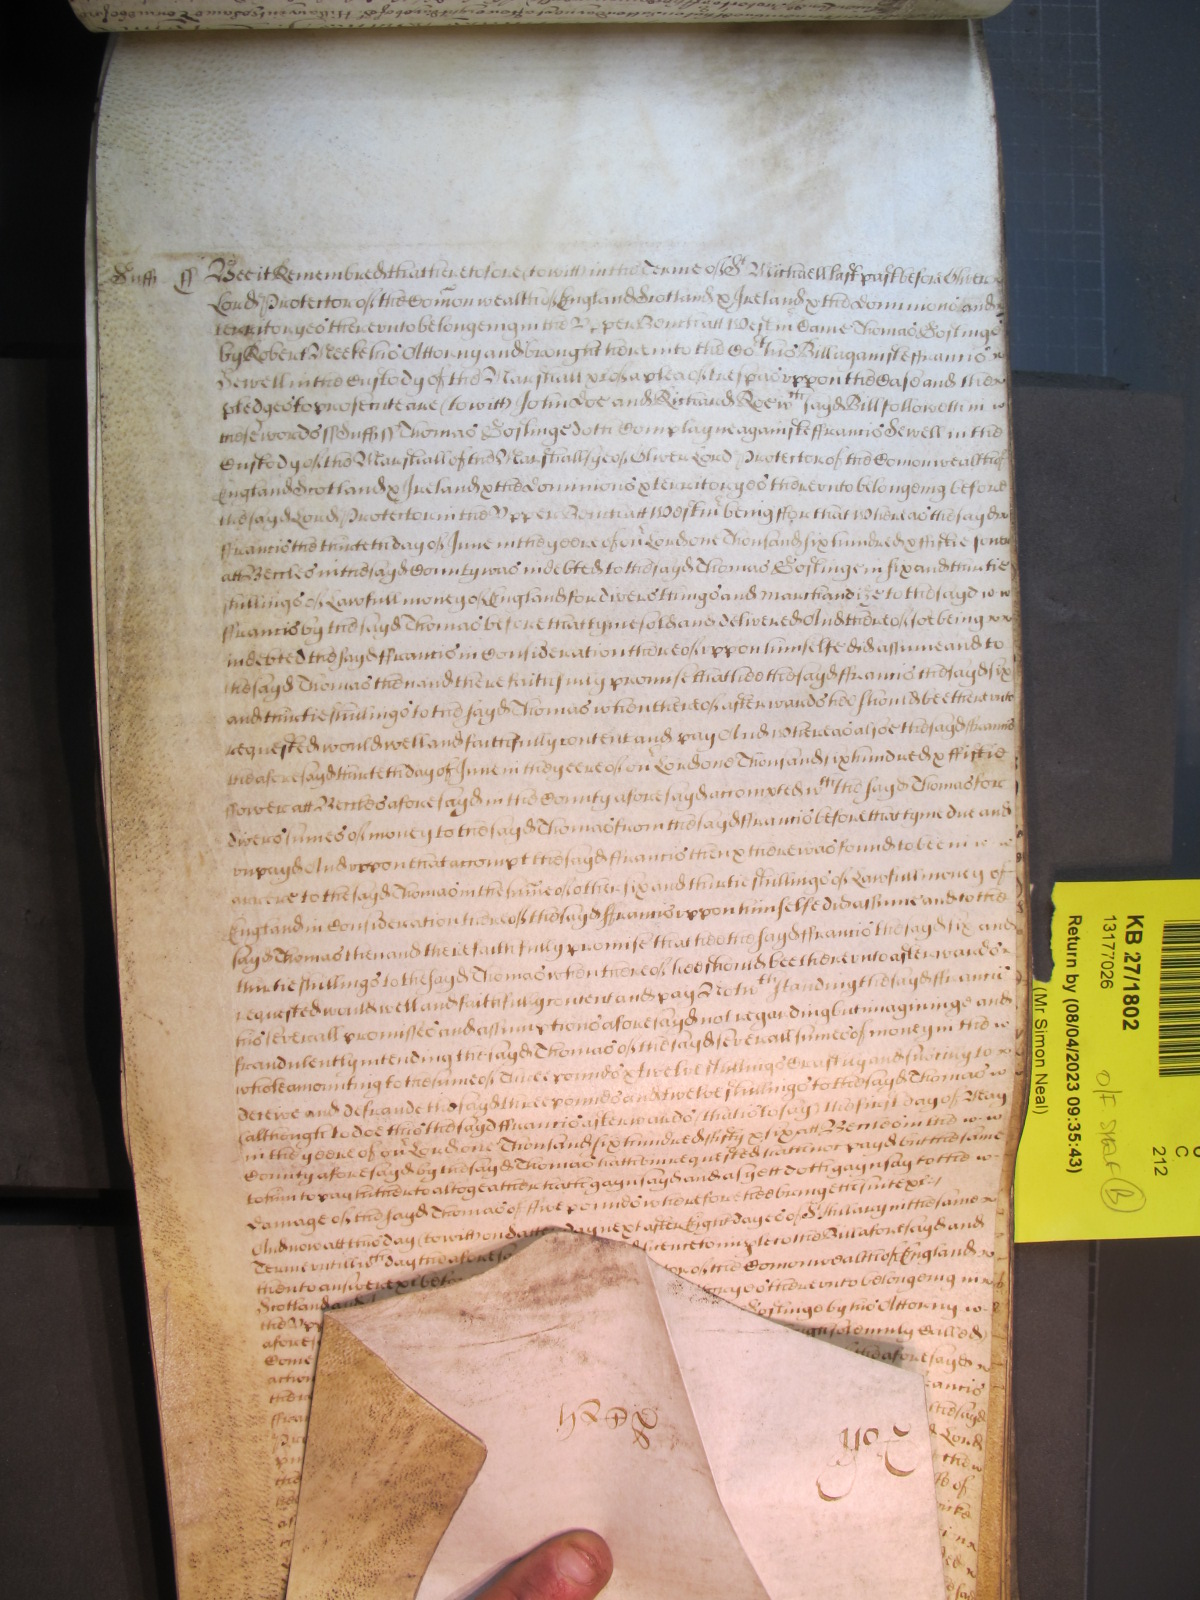 Suff ss Bee it Remembred that heretofore (to witt) in the Terme of St Michaell last past before Oliver
Lord Protector of the Comonwealth of England Scotland & Ireland & the Dominions and
territoryes thereunto belongeing in the Upper Bench att Westm Came Thomas Goslinge
by Robert Meeke his Attorny and brought here into the Cort his Bill against ffrancis
Sewell in the Custody of the Marshall &c of a plea of trespas uppon the Case and there
pledges to prosecute are (to witt) John Doe and Richard Roe wch sayd Bill followeth in
these words ss Suff ss Thomas Goslinge doth Complayne against ffrancis Sewell in the
Custody of the Marshall of the Marshallsye of Oliver Lord Protector of the Comonwealth of
England Scotland & Ireland & the Dominions & territoryes thereunto belongeing before
the sayd Lord Protector in the Upper Bench att Westm being ffor that Whereas the sayd
ffrancis the thirteth day of June in the yeere of or Lord one Thousand six hundred & fiftie fower
att Beccles in the sayd County was indebted to the sayd Thomas Goslinge in six and thirtie
shillings of Lawfull money of England for divers things and marchandize to the sayd
ffrancis by the sayd Thomas before that tyme sold and delivered And thereof soe being
indebted the sayd ffrancis in Consideration thereof uppon himselfe did assume and to
the sayd Thomas then and there faithfully promise that hee the sayd ffrancis the sayd six
and thirtie shillings to the sayd Thomas when thereof afterwards hee should bee thereunto
requested would well and faithfully content and pay And whereas alsoe the sayd ffrancis
the aforesayd thirteth day of June in the yeere of or Lord one Thousand six hundred & fiftie
fower att Beccles aforesayd in the County aforesayd accompted wth the sayd Thomas for
divers sumes of money to the sayd Thomas from the sayd ffrancis before that tyme due and
unpayd And uppon that accompt the sayd ffrancis then & there was found to bee in
arrere to the sayd Thomas in the sume of other six and thirtie shillings of Lawfull money of
England in Consideration thereof the sayd ffrancis uppon himselfe did assume and to the
sayd Thomas then and there faithfully promise that hee the sayd ffrancis the sayd six and
thirtie shillings to the sayd Thomas when thereof hee should bee thereunto afterwards
requested would well and faithfully content and pay Notwthstanding the sayd ffrancis
his severall promisses and assumptions aforesayd not regarding but imagininge and
fraudulently intending the sayd Thomas of the sayd severall sumes of money in the
whole amounting to the sume of Three pounds & twelve shillings Craftily and subtily to
deceive and defraude the sayd three pounds and twelve shillings to the sayd Thomas
(although to doe this the sayd ffrancis afterwards (that is to say) the first day of May
in the yeere of or Lord one Thousand six hundred fifty & six att Beccles in the
County aforesayd by the sayd Thomas hath ben requested hath not payd but the same
to him to pay hitherto altogeather hath gaynsayd and as yett doth gaynsay to the
damage of the sayd Thomas of ffive pounds wherefore hee bringeth suite &c
And now att this day (to witt) on day next after Eight dayes of St Hillary in the same
Terme untill wch day the afores licence to imparle to the Bill aforesayd and
then to answere &c befor tor of the Comonwealth of England
Scotland and ryes thereunto belongeing in
the Upp Goslinge by his Attorny
afores solemnly Called
Come the aforesayd
action ffrancis
there the sayd
ffran Lord
Pro the
of
8 Dech
Roll
KB 27/1802
13177026
Return by (08/04/2023 09:35:43)
(Mr Simon Neal)
O/F Staff B
C
212